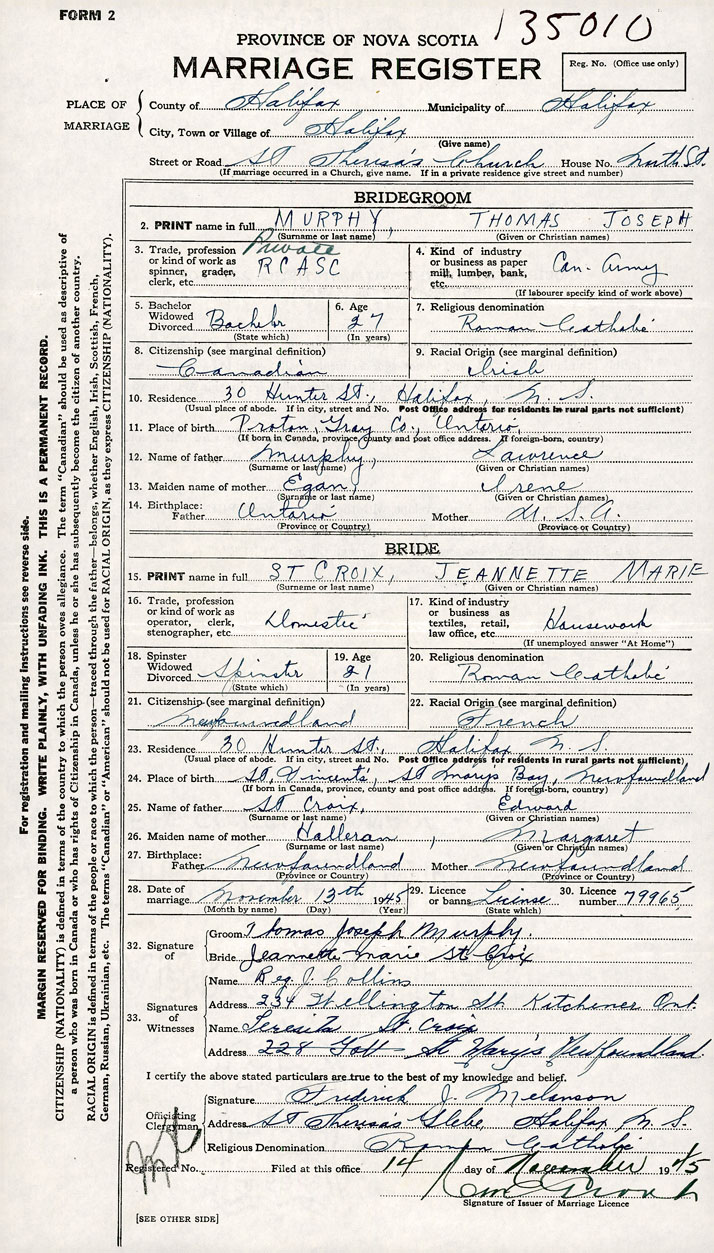 FORM 2
135010
PROVINCE OF NOVA SCOTIA
MARRIAGE REGISTER
Reg. No. (Office use only)
PLACE OF MARRIAGE
County of Halifax Municipality of Halifax
City, Town or Village of Halifax
(Give name)
Street or Road St Theresa's Church House No. North St.
(If marriage occurred in a Church, give name. If in a private residence give street and number)
BRIDEGROOM
2. PRINT name in full MURPHY, THOMAS JOSEPH
(Surname or last name) (Given or Christian names)
3. Trade, profession or kind of work as spinner, grader, clerk, etc. Private RCASC
4. Kind of industry or business as paper mill, lumber, bank, etc. Can. Army
(If labourer specify kind of work above)
5. Bachelor Widowed Divorced Bachelor
(State which)
6. Age 27
(In years)
7. Religious denomination Roman Catholic
8. Citizenship (see marginal definition) Canadian
9. Racial Origin (see marginal definition) Irish
10. Residence 30 Hunter St., Halifax, N. S.
(Usual place of abode. If in city, street and No. Post Office address for residents in rural parts not sufficient)
11. Place of birth Proton, Gray Co., Ontario,
(If born in Canada, province county and post office address. If foreign-born, country)
12. Name of father Murphy, Lawrence
(Surname or last name) (Given or Christian names)
13. Maiden name of mother Egan, Irene
(Surname or last name) (Given or Christian names)
14. Birthplace: Father Ontario Mother U. S. A.
(Province or Country) (Province or Country)
BRIDE
15. PRINT name in full ST CROIX, JEANNETTE MARIE
(Surname or last name) (Given or Christian names)
16. Trade, profession or kind of work as operator, clerk, stenographer, etc. Domestic
17. Kind of industry or business as textiles, retail, law office, etc. Housework
(If unemployed answer "At Home")
18. Spinster Widowed Divorced Spinster
(State which)
19. Age 21
(In years)
20. Religious denomination Roman Catholic
21. Citizenship (see marginal definition) Newfoundland
22. Racial Origin (see marginal definition) French
23. Residence 30 Hunter St., Halifax, N. S.
(Usual place of abode. If in city, street and No. Post Office address for residents in rural parts not sufficient)
24. Place of birth St. Vincents, St Marys Bay, Newfoundland
(If born in Canada, province, county and post office address. If foreign-born, country)
25. Name of father St Croix, Edward
(Surname or last name) (Given or Christian names)
26. Maiden name of mother Halleran, Margaret
(Surname or last name) (Given or Christian names)
27. Birthplace: Father Newfoundland Mother Newfoundland
(Province or Country) (Province or Country)
28. Date of marriage November 13th 1945
(Month by name) (Day) (Year)
29. Licence or banns License
(State which)
30. Licence number 79965
32. Signature of
Groom Thomas Joseph Murphy.
Bride Jeannette Marie St Croix
33. Signatures of Witnesses
Name Reg. J. Collins
Address 234 Wellington St. Kitchener Ont.
Name Teresita St. Croix
Address 228 St Mary's Newfoundland.
I certify the above stated particulars are true to the best of my knowledge and belief.
Officiating Clergyman
Signature Frederick J. Melanson
Address St Theresa's Glebe, Halifax N. S.
Religious Denomination Roman Catholic
Registered No. Filed at this office 14 day of November 1945
Signature of Issuer of Marriage Licence
[SEE OTHER SIDE]
For registration and mailing instructions see reverse side.
MARGIN RESERVED FOR BINDING. WRITE PLAINLY, WITH UNFADING INK. THIS IS A PERMANENT RECORD.
CITIZENSHIP (NATIONALITY) is defined in terms of the country to which the person owes allegiance. The term "Canadian" should be used as descriptive of
a person who was born in Canada or who has rights of Citizenship in Canada, unless he or she has subsequently become the citizen of another country.
RACIAL ORIGIN is defined in terms of the people or race to which the person—traced through the father—belongs, whether English, Irish, Scottish, French,
German, Russian, Ukrainian, etc. The terms "Canadian" or "American" should not be used for RACIAL ORIGIN, as they express CITIZENSHIP (NATIONALITY).